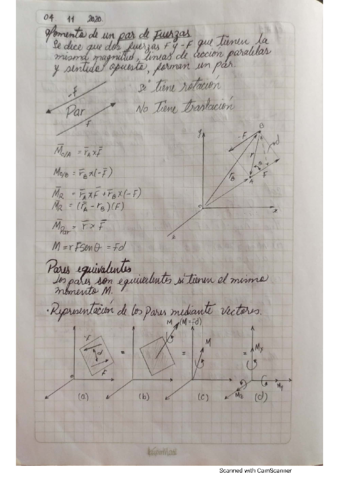 04 11 2020
Momento de un par de Fuerzas
Se dice que dos fuerzas F y -F que tienen la
misma magnitud, lineas de acción paralelas
y sentido opuesto, forman un par.
-F
Par
F
Si tiene rotación
No Tiene traslación
M̄O/A = r̄A x F̄
M̄O/B = r̄B x (-F̄)
M̄R = r̄A x F̄ + r̄B x (-F̄)
M̄R = (r̄A - r̄B)(F̄)
M̄Par = r̄ x F̄
M = r F Sen θ = Fd
Pares equivalentes
Los pares son equivalentes si tienen el mismo
momento M.
• Representación de los Pares mediante vectores.
M (M=Fd)
-F
d
F
=
=
M
=
My
Mx
(a) (b) (c) (d)
Scanned with CamScanner